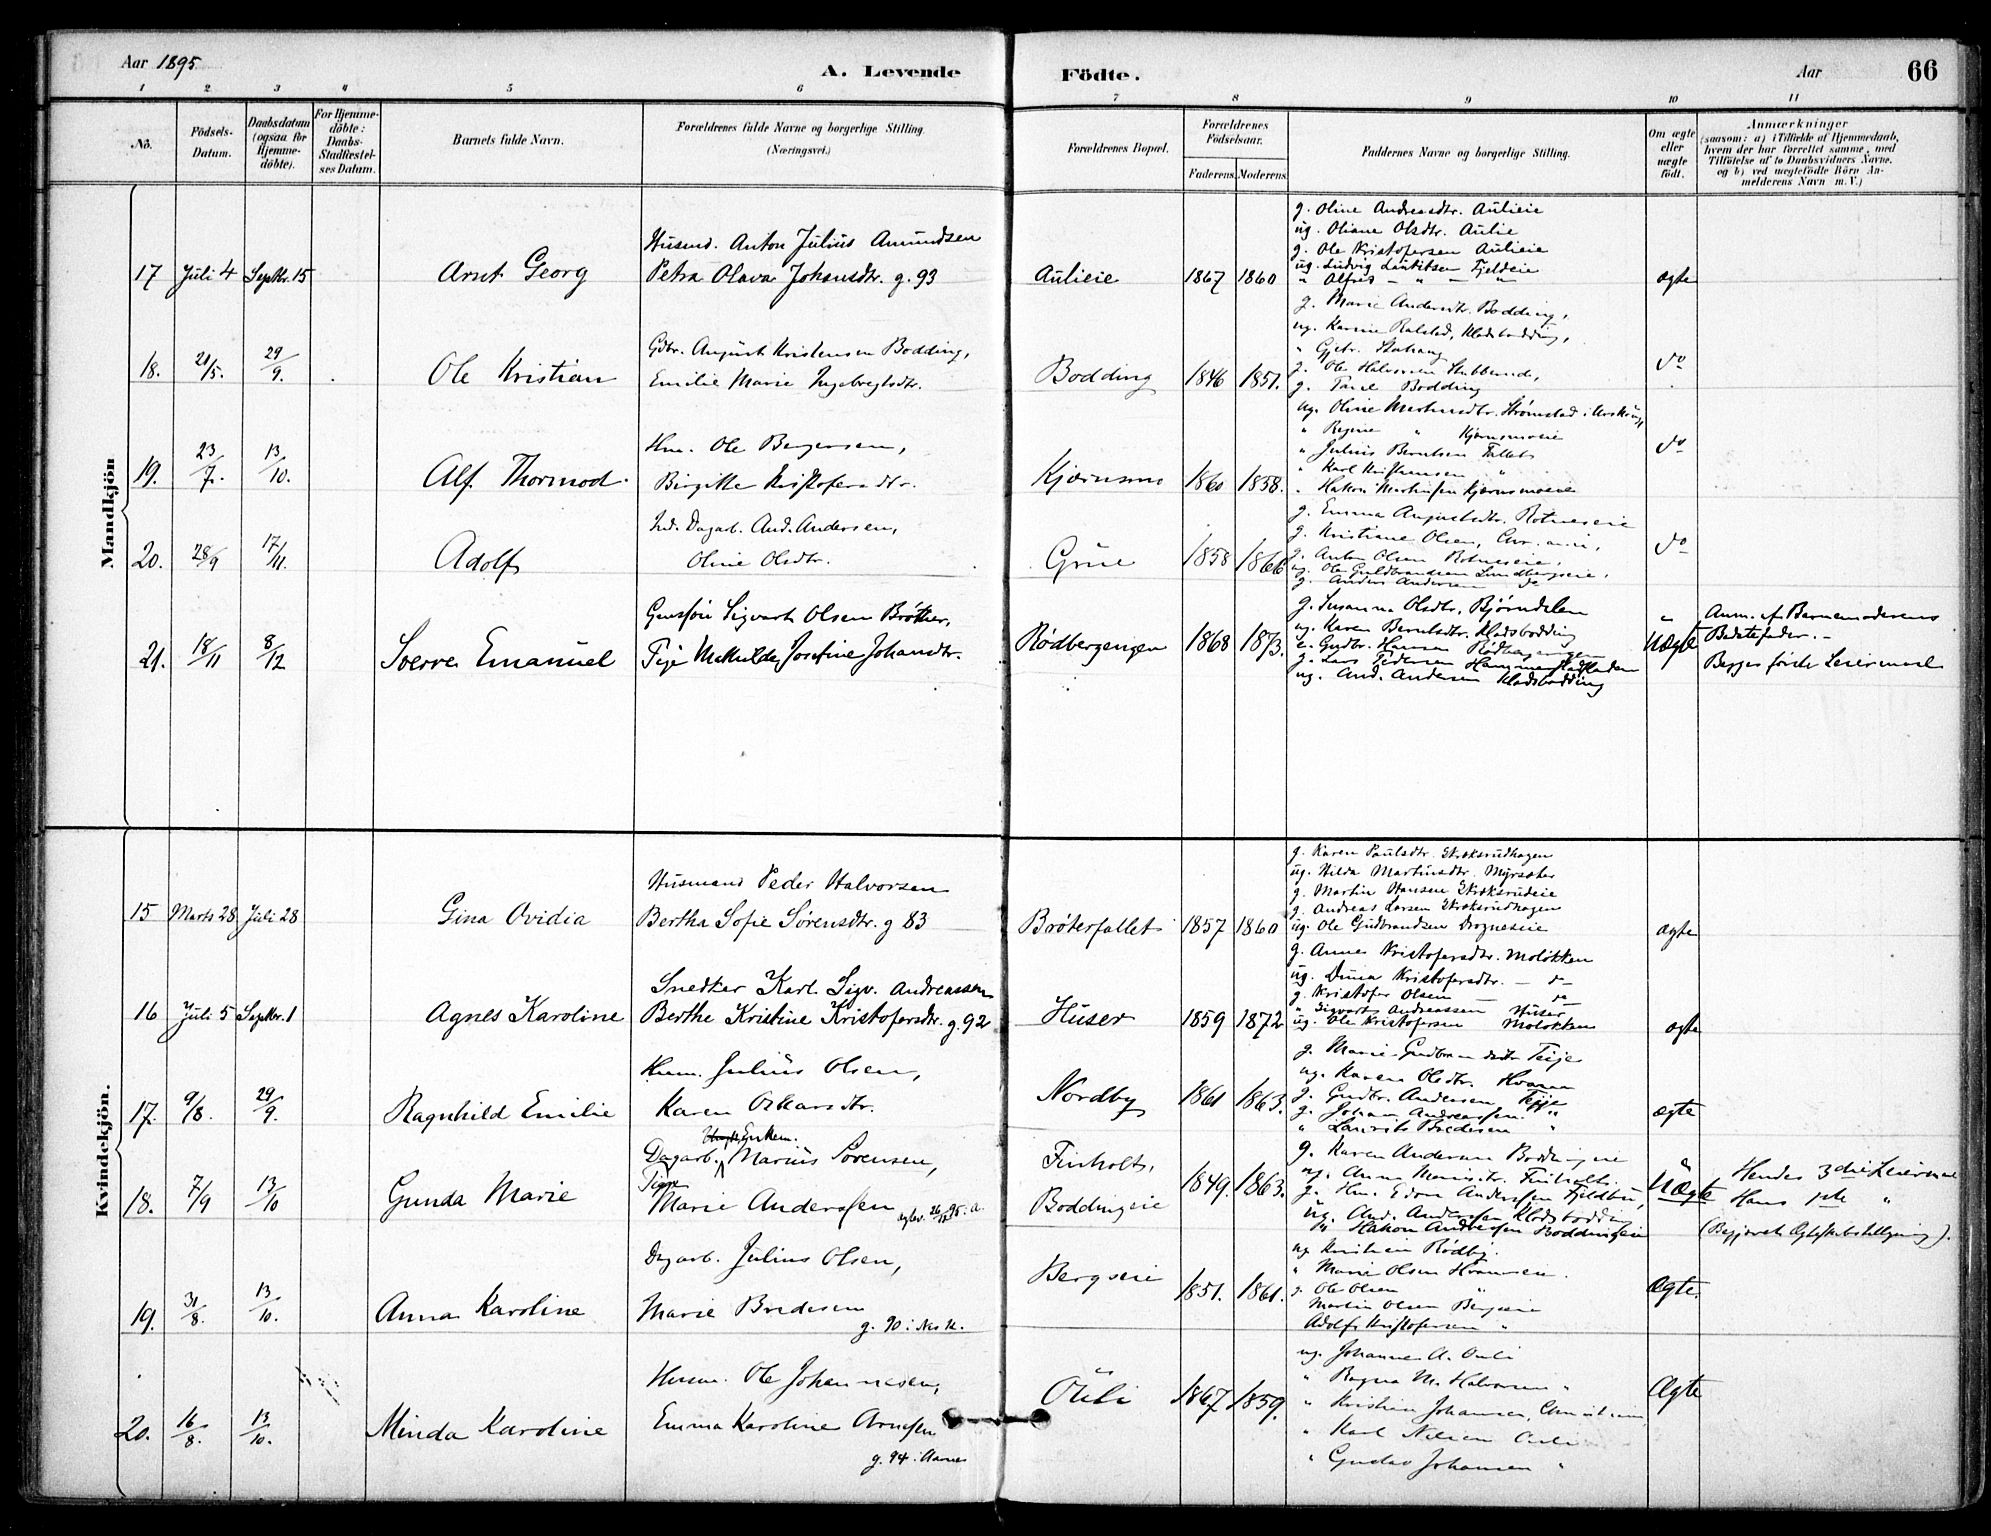 Aar 1895.
A. Levende Födte.
Aar
66
1 2 3 4 5 6 7 8 9 10 11
No.
Födsels-Datum.
Daabsdatum (ogsaa for Hjemme-döbte).
For Hjemme-döbte: Daabs-Stadfæstel-ses Datum.
Barnets fulde Navn.
Forældrenes fulde Navne og borgerlige Stilling. (Næringsvei.)
Forældrenes Bopæl.
Forældrenes Födselsaar.
Faderens. Moderens.
Faddernes Navne og borgerlige Stilling.
Om ægte eller uægte födt.
Anmærkninger
(saasom: a) i Tilfælde af Hjemmedaab,
hvem der har forrettet samme, med
Tilföielse af to Daabsvidners Navne.
og b) ved uægtefödte Börn An-
melderens Navn m. V.)
Mandkjön
17 Juli 4 Septbr. 15
Arnt Georg
Husmd. Anton Julius Amundsen
Petra Olava Johansdtr. g. 93
Aulieie
1867 1860
g. Oline Andreasdtr. Aulieie
ug. Oliane Olsdtr. Aulie
g. Ole Kristofersen Aulieie
ug. Ludvig Lauritsen Fjeldeie
" Alfred - " - "
ægte
18. 21/5. 29/9.
Ole Kristian
Gdbr. August Kristensen Bodding,
Emilie Marie Ingebregtsdtr.
Bodding
1846 1851.
g. Marie Andersdtr. Bodding,
ug. Karine Ralstad, Kladsbodding,
g. Ole Halvorsen
g. Paul Bodding
do
19. 23/7. 13/10.
Alf Thormod
Hm. Ole Bergersen,
Birgitte Kristofersdtr.
Kjærnsmo
1860 1858.
ug. Oline Martinsdtr. Strømstad i Urskoug
" Regine " Kjærnsmoeie
" Julius Berntsen Fallet
" Karl Kristiansen "
" Hakon Martinsen Kjærnsmoeie
do
20. 28/9 17/11.
Adolf
Ind. Dagarb. And. Andersen,
Oline Olsdtr.
Grue
1858 1866
g. Emma Augustsdtr. Rotneseie
g. Kristiane Olsen,
g. Anton Olsen Rotneseie,
ug. Ole Guldbrandsen Lundbergseie,
g. Anders Andersen do
do
21. 18/11 8/12
Sverre Emanuel
Gaardsøn Sigvart Olsen Brøther,
Pige Mathilde Josefine Johansdtr.
Rødbergengen
1868 1873.
g. Susanna Olsdtr. Bjørndalen
ug. Karen Berntsdtr. Kladsbodding
e. Gudbr. Hansen Rødbergengen
g. Lars Pedersen
ug. And. Andersen Kladsbodding
Uægte
Anm. af Barnemoderens
Bedstefader. -
Begges første Leiermaal
Kvindekjön.
15 Marts 28 Juli 28
Gina Ovidia
Husmand Peder Halvorsen
Bertha Sofie Sørensdtr. g 83
Brøterfallet
1857 1860
g. Karen Paulsdtr. Skoksrudhagen
ug. Hilda Martinsdtr. Myrsæter
g. Martin Hansen Skoksrudeie
g. Andreas Larsen Skoksrudhagen
ug. Ole Gudbrandsen Drogneseie
ægte
16 Juli 5 Septbr. 1
Agnes Karoline
Snedker Karl Sigv. Andreassen
Berthe Kristine Kristofersdtr. g 92
Huser
1859 1872
g. Anne Kristofersdtr. Moløkken
ug. Dina Kristofersdtr. - do
g. Kristofer Olsen - do
" Sigvart Andreassen Huser
ug. Ole Kristofersen Moløkken
ægte
17. 9/8. 29/9.
Ragnhild Emilie
Husm. Julius Olsen,
Karen Oskarsdtr.
Nordby
1861 1863.
g. Marie Gudbrandsdtr Teije
ug. Karen Olsdtr. Hvamm
g. Gudbr. Andersen Teije
g. Johan Andreassen "
" Laurits Bredesen "
ægte
18. 7/9 13/10
Gunda Marie
Enkem.
Dagarb. Marius Sørensen,
Pige
Marie Anderssen
Finholt,
Boddingeie
1849. 1863.
g. Karen Andersen Boddingeie
ug. Anna Mariusdtr. Finholt.
ug. And. Anderssen Kladsbodding
" Hakon Andressen Boddingeie
Uægte
Hendes 3die Leiermaal
Hans 1ste "
19. 31/8. 13/10.
Anna Karoline
Dagarb. Julius Olsen,
Marie Bredesen
g. 90 i Nes K.
Bergseie
1851. 1861.
ug Kristian Rødby.
" Marie Olsen
g. Ole Olsen "
Martin Olsen Bergseie
Adolf Kristofersen "
Ægte.
20. 16/8. 13/10.
Minda Karoline
Husm. Ole Johannesen,
Emma Karoline Arnesen
g. 94 i Aarnes
Ouli
1867 1859.
ug. Johanne A. Ouli
" Ragna M. Halvorsen "
" Kristian Johansen,
" Karl Nilsen Ouli
" Gustav Johansen "
Ægte